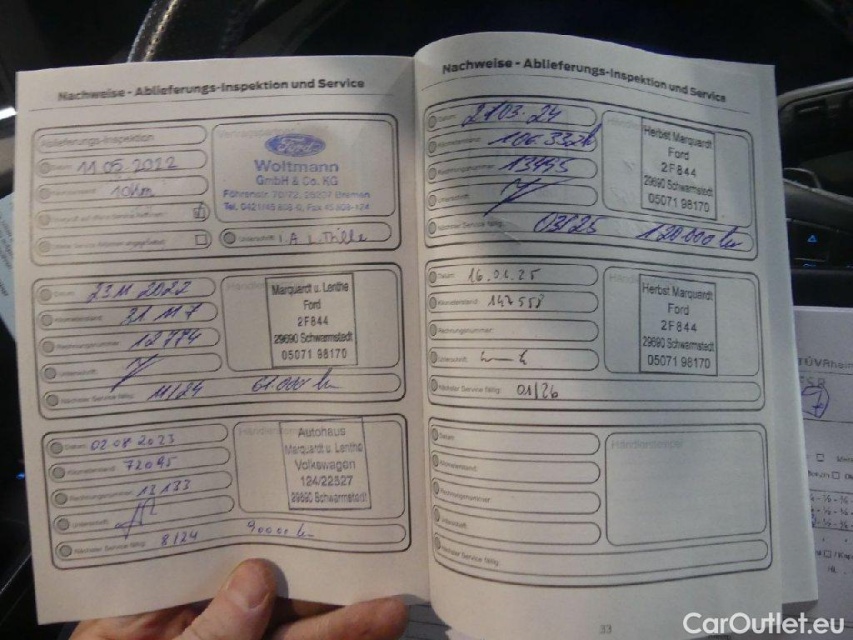 Nachweise - Ablieferungs-Inspektion und Service
Ablieferungs-Inspektion
11 05.2022
10km
Ford
Woltmann
GmbH & Co. KG
Unterschrift
i.A.
Datum
23 11 2022
Kilometerstand
31 117
Rechnungsnummer
12774
Unterschrift
Nächster Service fällig:
11/24
61.000 km
Marquardt u. Lenthe
Ford
2F844
29690 Schwarmstedt
05071 98170
Datum:
02.08 2023
Kilometerstand:
72095
Rechnungsnummer:
13 133
Unterschrift:
Nächster Service fällig:
8/24
90000 km
Autohaus
Marquardt u. Lenthe
Volkswagen
124/22527
29690 Schwarmstedt
Nachweise - Ablieferungs-Inspektion und Service
Datum:
2103.24
Kilometerstand:
106.332k
Rechnungsnummer:
13495
Unterschrift:
Nächster Service fällig:
03/25
120000 km
Herbst Marquardt
Ford
2F844
29690 Schwarmstedt
05071 98170
Datum:
16.01.25
Kilometerstand:
147558
Rechnungsnummer:
Unterschrift:
Nächster Service fällig:
01/26
Herbst Marquardt
Ford
2F844
29690 Schwarmstedt
05071 98170
Datum:
Kilometerstand:
Rechnungsnummer:
Unterschrift:
Nächster Service fällig:
Händlerstempel
33
TÜVRhein
CarOutlet.eu